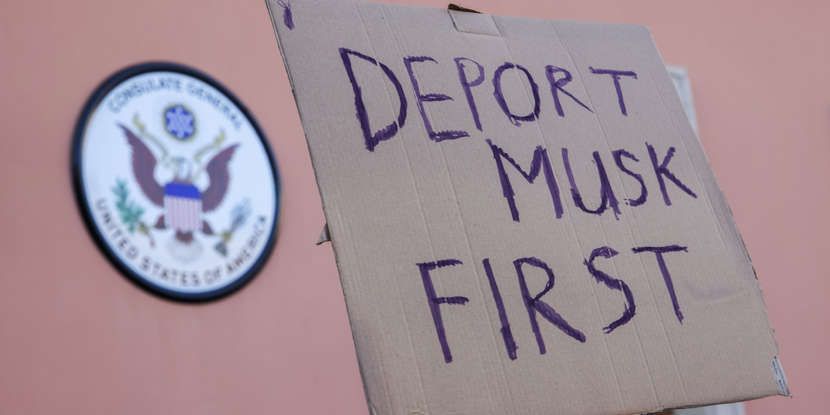 CONSULATE GENERAL
UNITED STATES OF AMERICA
DEPORT
MUSK
FIRST